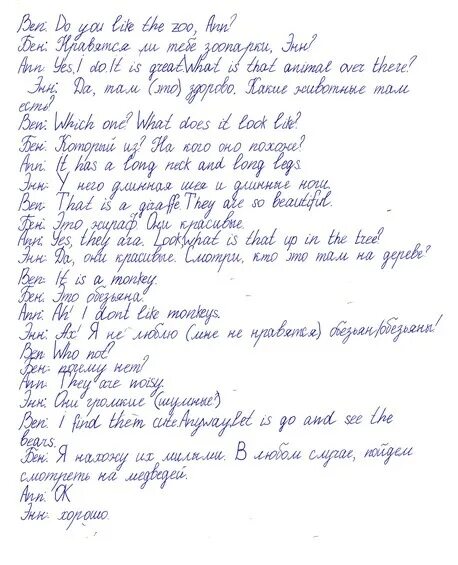 Ben: Do you like the zoo, Ann?
Бен: Нравятся ли тебе зоопарки, Энн?
Ann: Yes, I do. It is great. What is that animal over there?
Энн: Да, там (это) здорово. Какие животные там
есть?
Ben: Which one? What does it look like?
Бен: Который из? На кого оно похоже?
Ann: It has a long neck and long legs.
Энн: У него длинная шея и длинные ноги.
Ben: That is a giraffe. They are so beautiful.
Бен: Это жираф. Они красивые.
Ann: Yes, they ara. Look, what is that up in the tree?
Энн: Да, они красивые. Смотри, кто это там на дереве?
Ben: It is a monkey.
Бен: Это обезьяна.
Ann: Ah! I dont like monkeys.
Энн: Ах! Я не люблю (мне не нравятся) обезьян/обезьяны!
Ben: Who not?
Бен: почему нет?
Ann: They are noisy.
Энн: Они громкие (шумные!)
Ben: I find them cute. Anyway, let is go and see the
bears.
Бен: Я нахожу их милыми. В любом случае, пойдем
смотреть на медведей.
Ann: OK
Энн: хорошо.